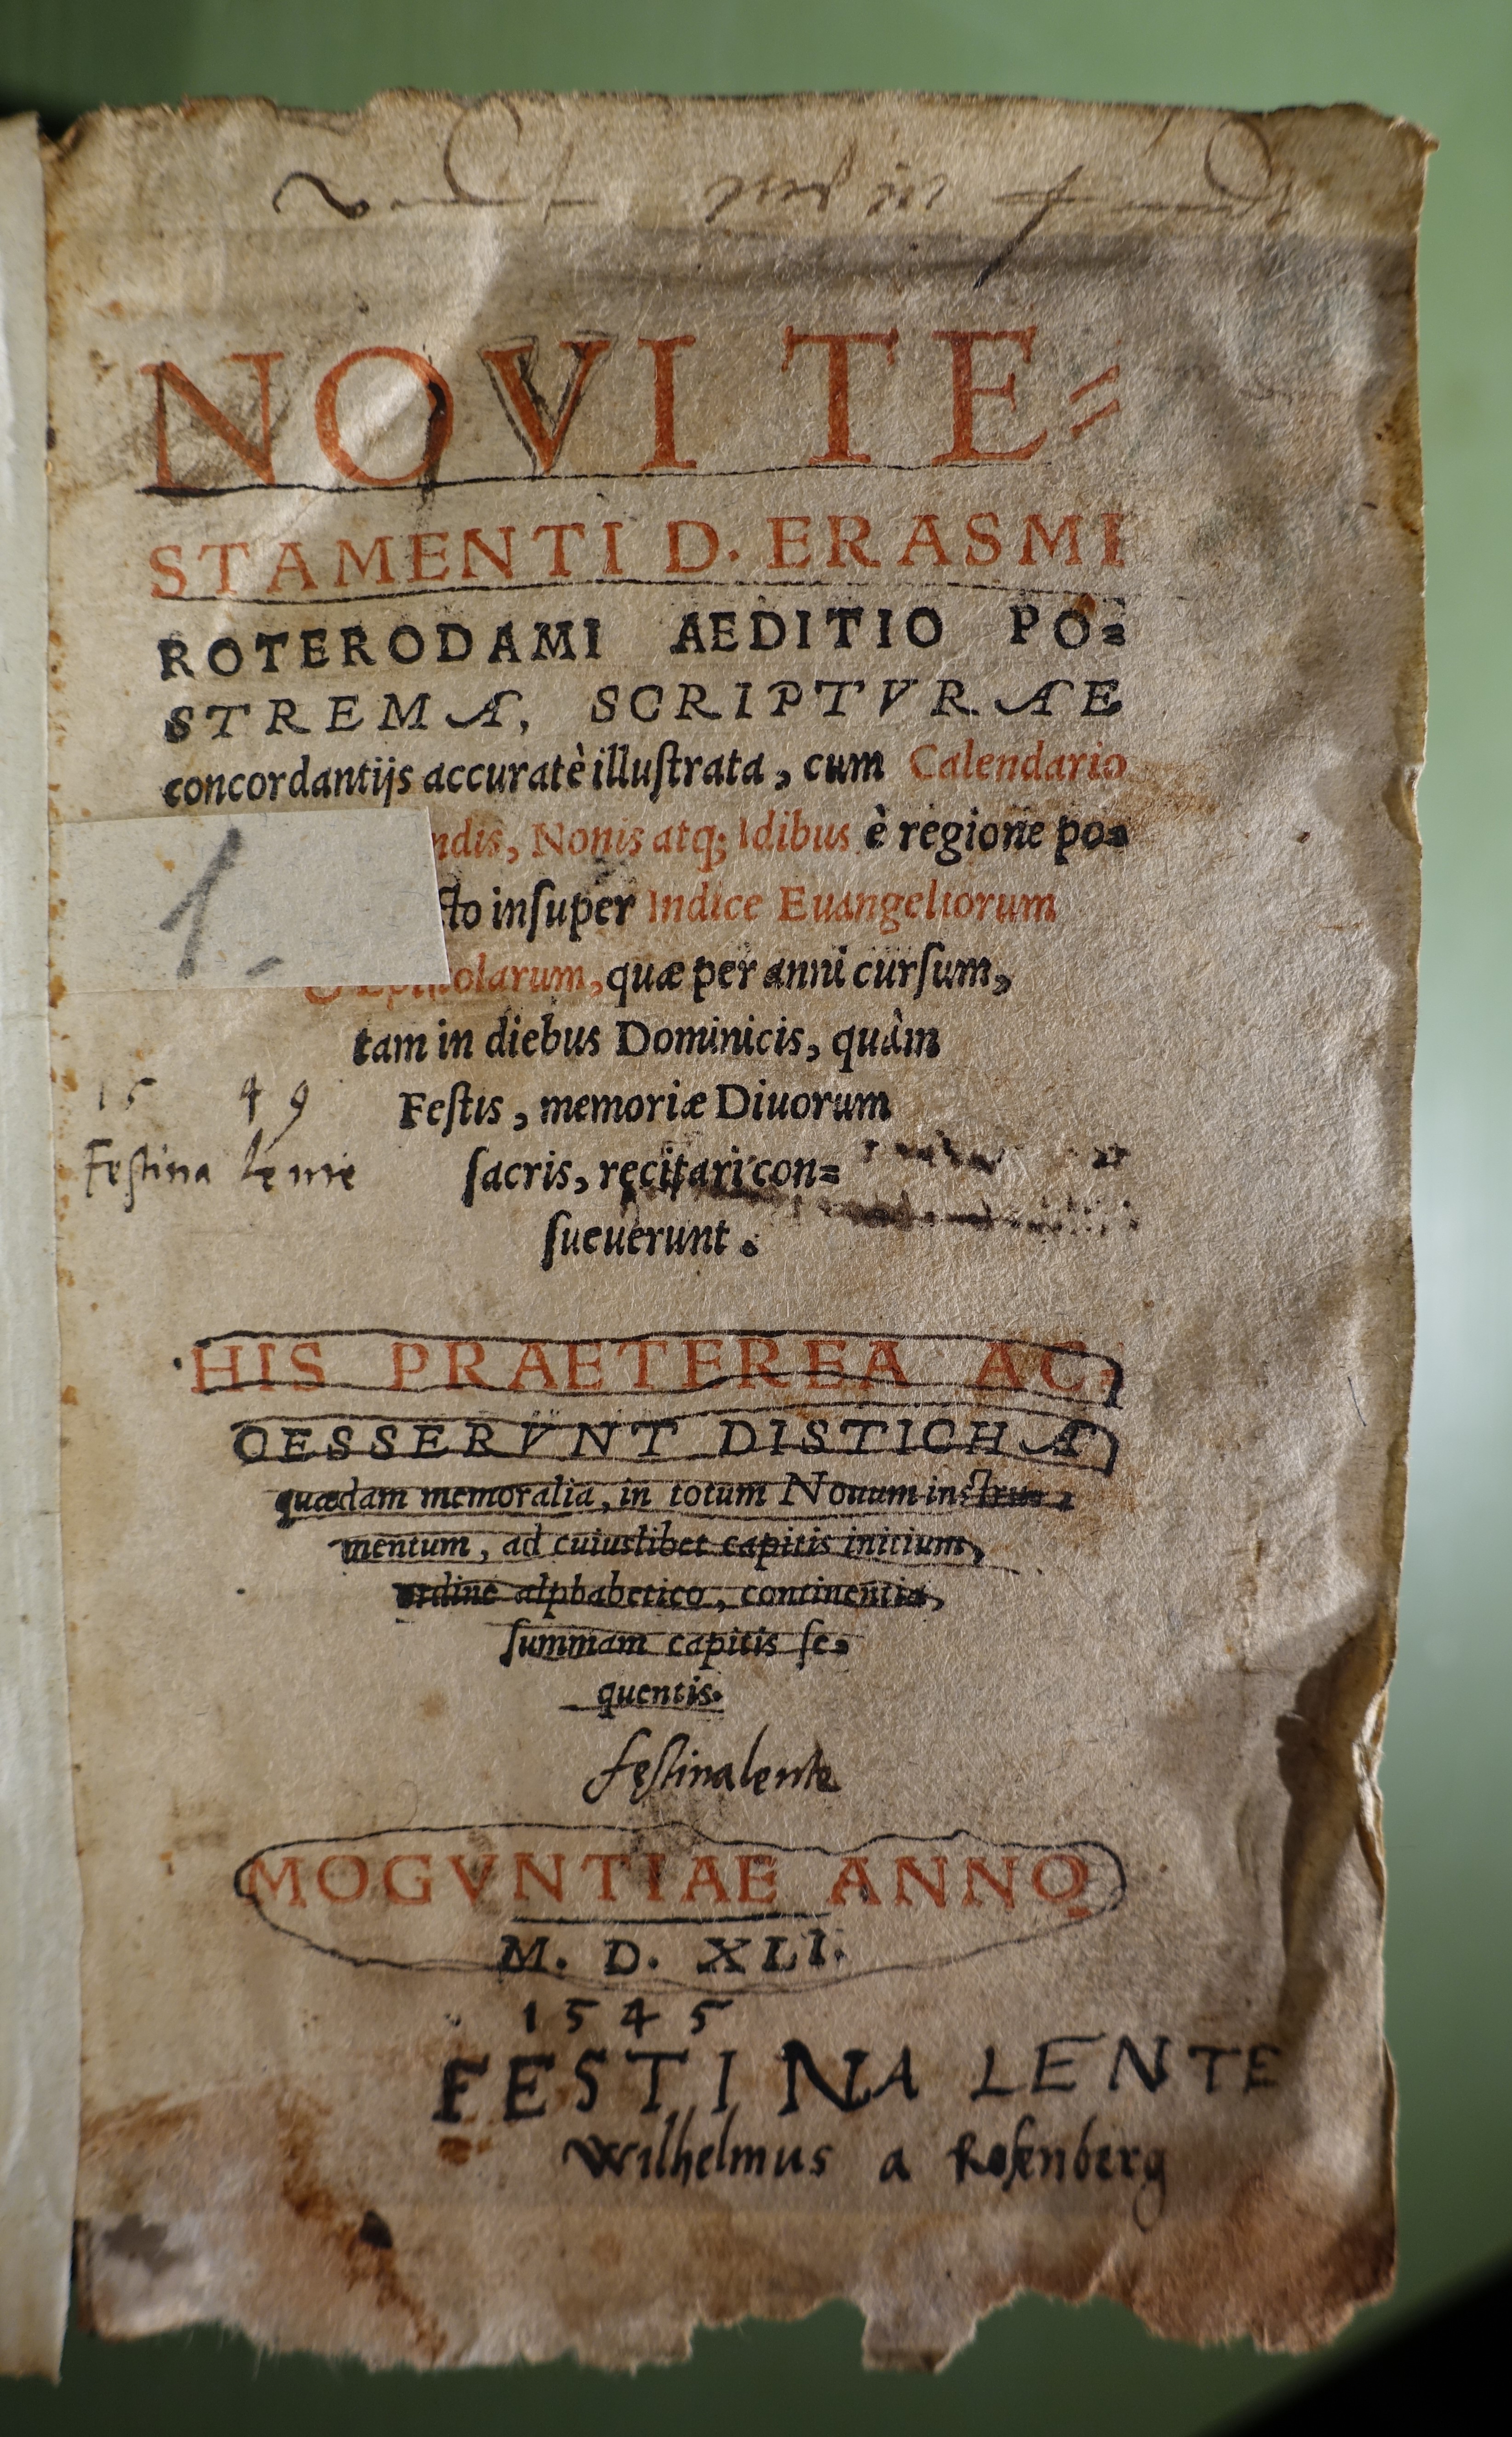 NOVI TE=
STAMENTI D. ERASMI
ROTERODAMI AEDITIO PO=
STREMA, SCRIPTVRAE
concordantijs accuratè illuſtrata, cum Calendario
ndis, Nonis atq; Idibus è regione po=
1.
cto inſuper Indice Euangeliorum
& Epiſtolarum, quæ per anni curſum,
tam in diebus Dominicis, quàm
15 49
Feſtis, memoriæ Diuorum
Feſtina lente
ſacris, recitari con=
ſueuerunt.
HIS PRAETEREA AC=
CESSERVNT DISTICHA
quædam memoralia, in totum Nouum inſtru=
mentum, ad cuiuslibet capitis initium,
ordine alphabetico, continentia,
ſummam capitis ſe=
quentis.
feſtina lente
MOGVNTIAE ANNO
M. D. XLI.
1545
FESTINA LENTE
Wilhelmus a Roſenberg